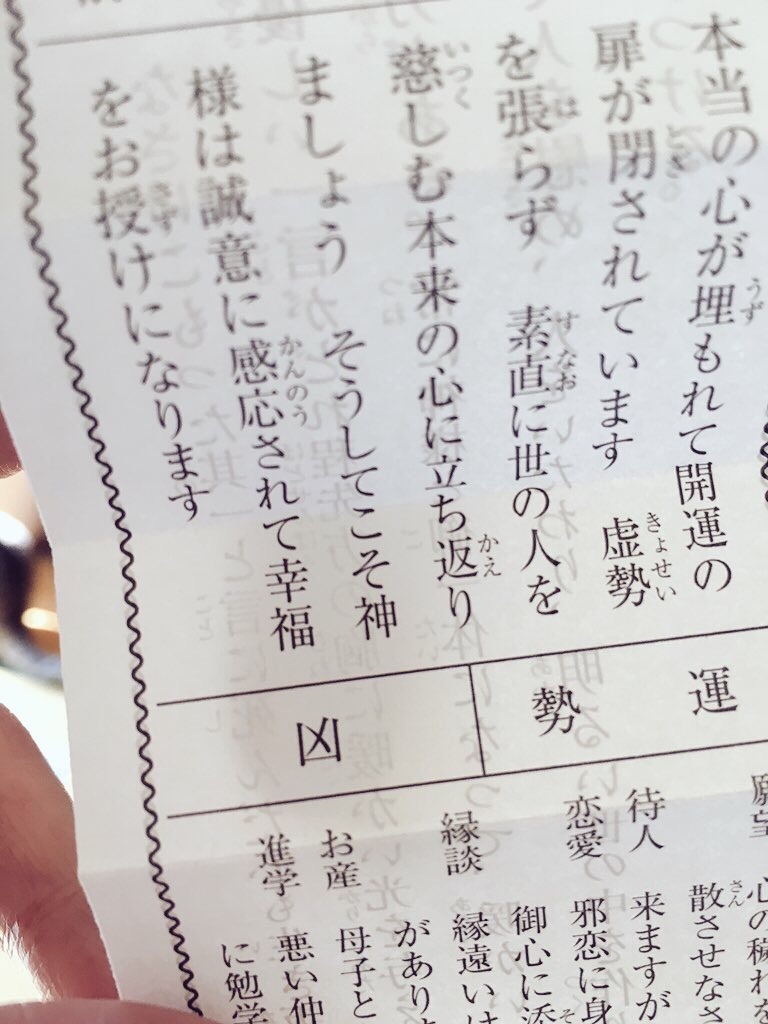 本当の心が埋もれて開運の
扉が閉されています　虚勢
を張らず　素直に世の人を
慈しむ本来の心に立ち返り
ましょう　そうしてこそ神
様は誠意に感応されて幸福
をお授けになります
運勢
凶
願望　心の穢れを
散させなさ
待人　来ますが
恋愛　邪恋に身
御心に添
縁談　縁遠いは
がありま
お産　母子と
進学　悪い仲
に勉学